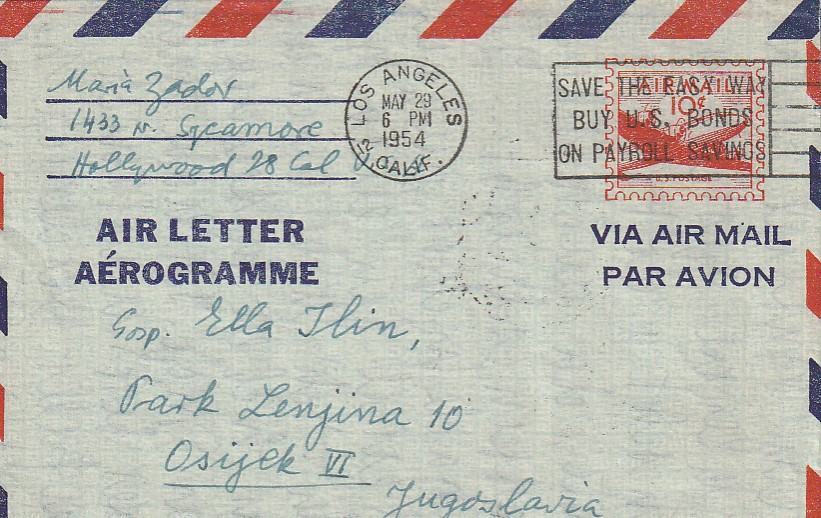 Maria Zador
1433 N. Sycamore
Hollywood 28 Cal U.S.A.
LOS ANGELES
MAY 29
6 PM
1954
CALIF.
SAVE THE EASY WAY
BUY U.S. BONDS
ON PAYROLL SAVINGS
AIR MAIL
10¢
U.S. POSTAGE
AIR LETTER
AÉROGRAMME
VIA AIR MAIL
PAR AVION
Gosp. Ella Ilin,
Park Lenjina 10
Osijek VI
Jugoslavia